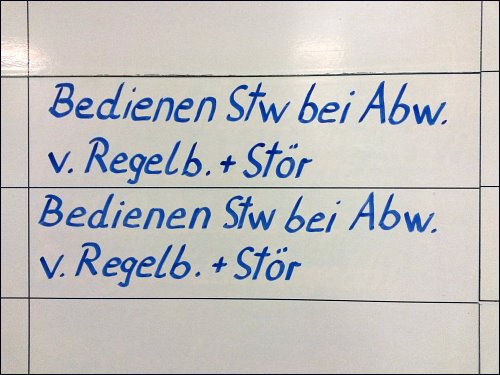 Bedienen Stw bei Abw.
v. Regelb. + Stör
Bedienen Stw bei Abw.
v. Regelb. + Stör